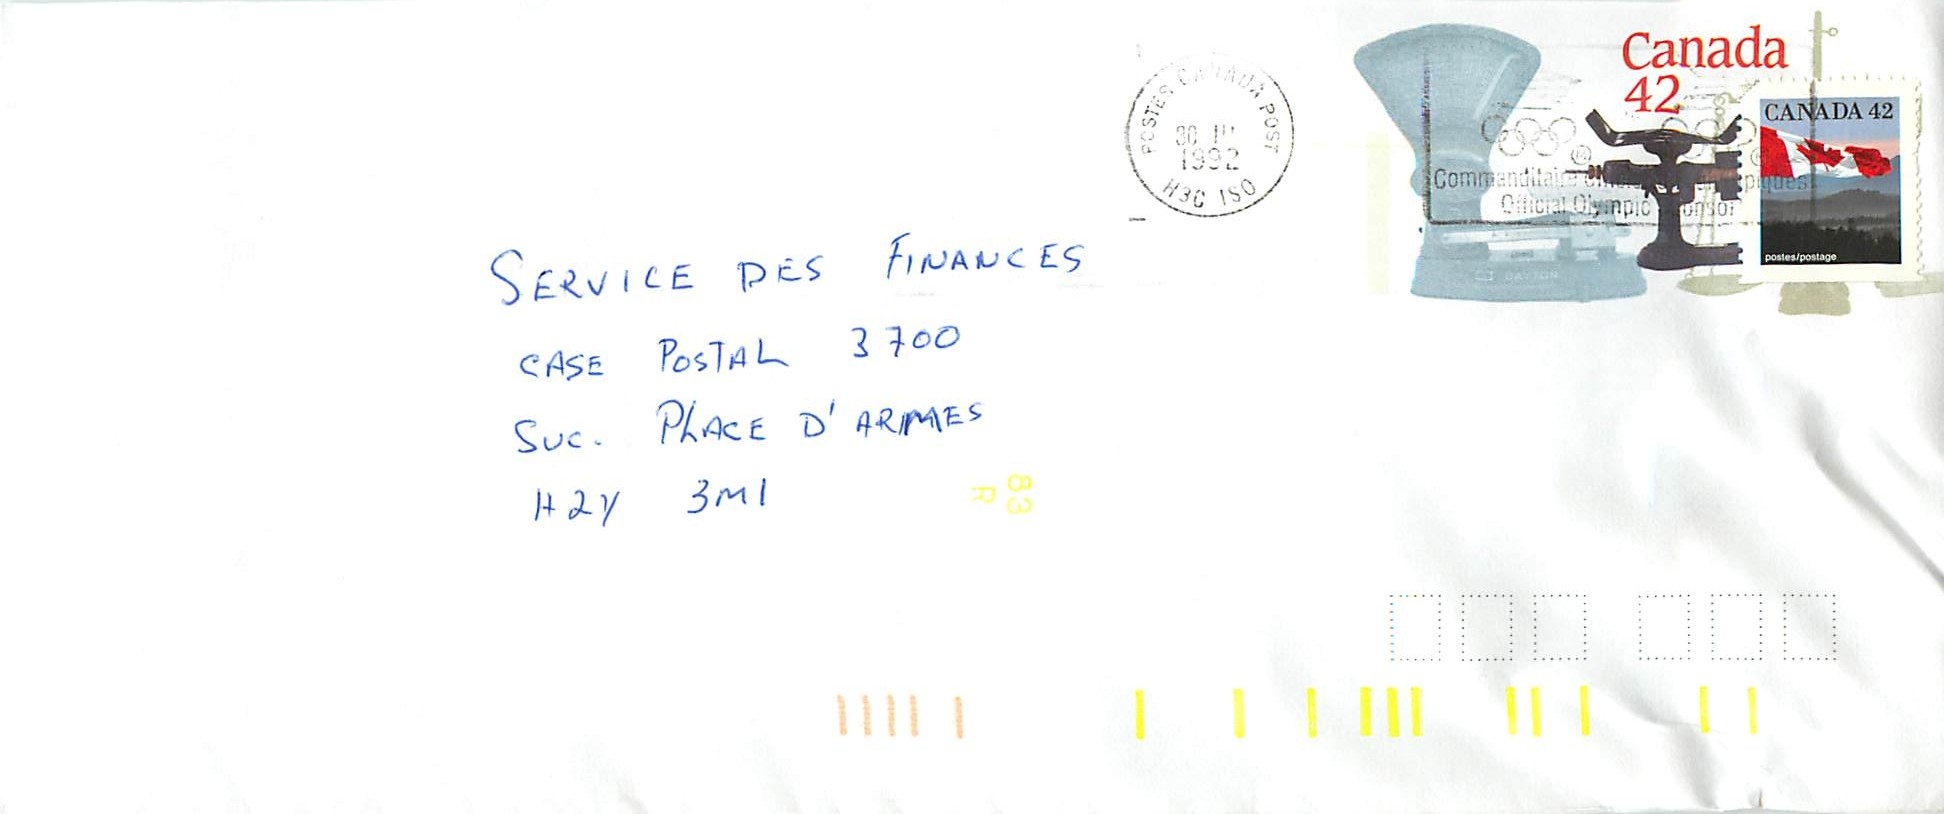 Canada
42
CANADA 42
postes/postage
POSTES CANADA POST
30 III
1992
H3C 1S0
Commanditaire
Official Olympic
DAYTON
SERVICE DES FINANCES
CASE POSTAL 3700
SUC. PLACE D'ARMES
H2Y 3M1
83
R